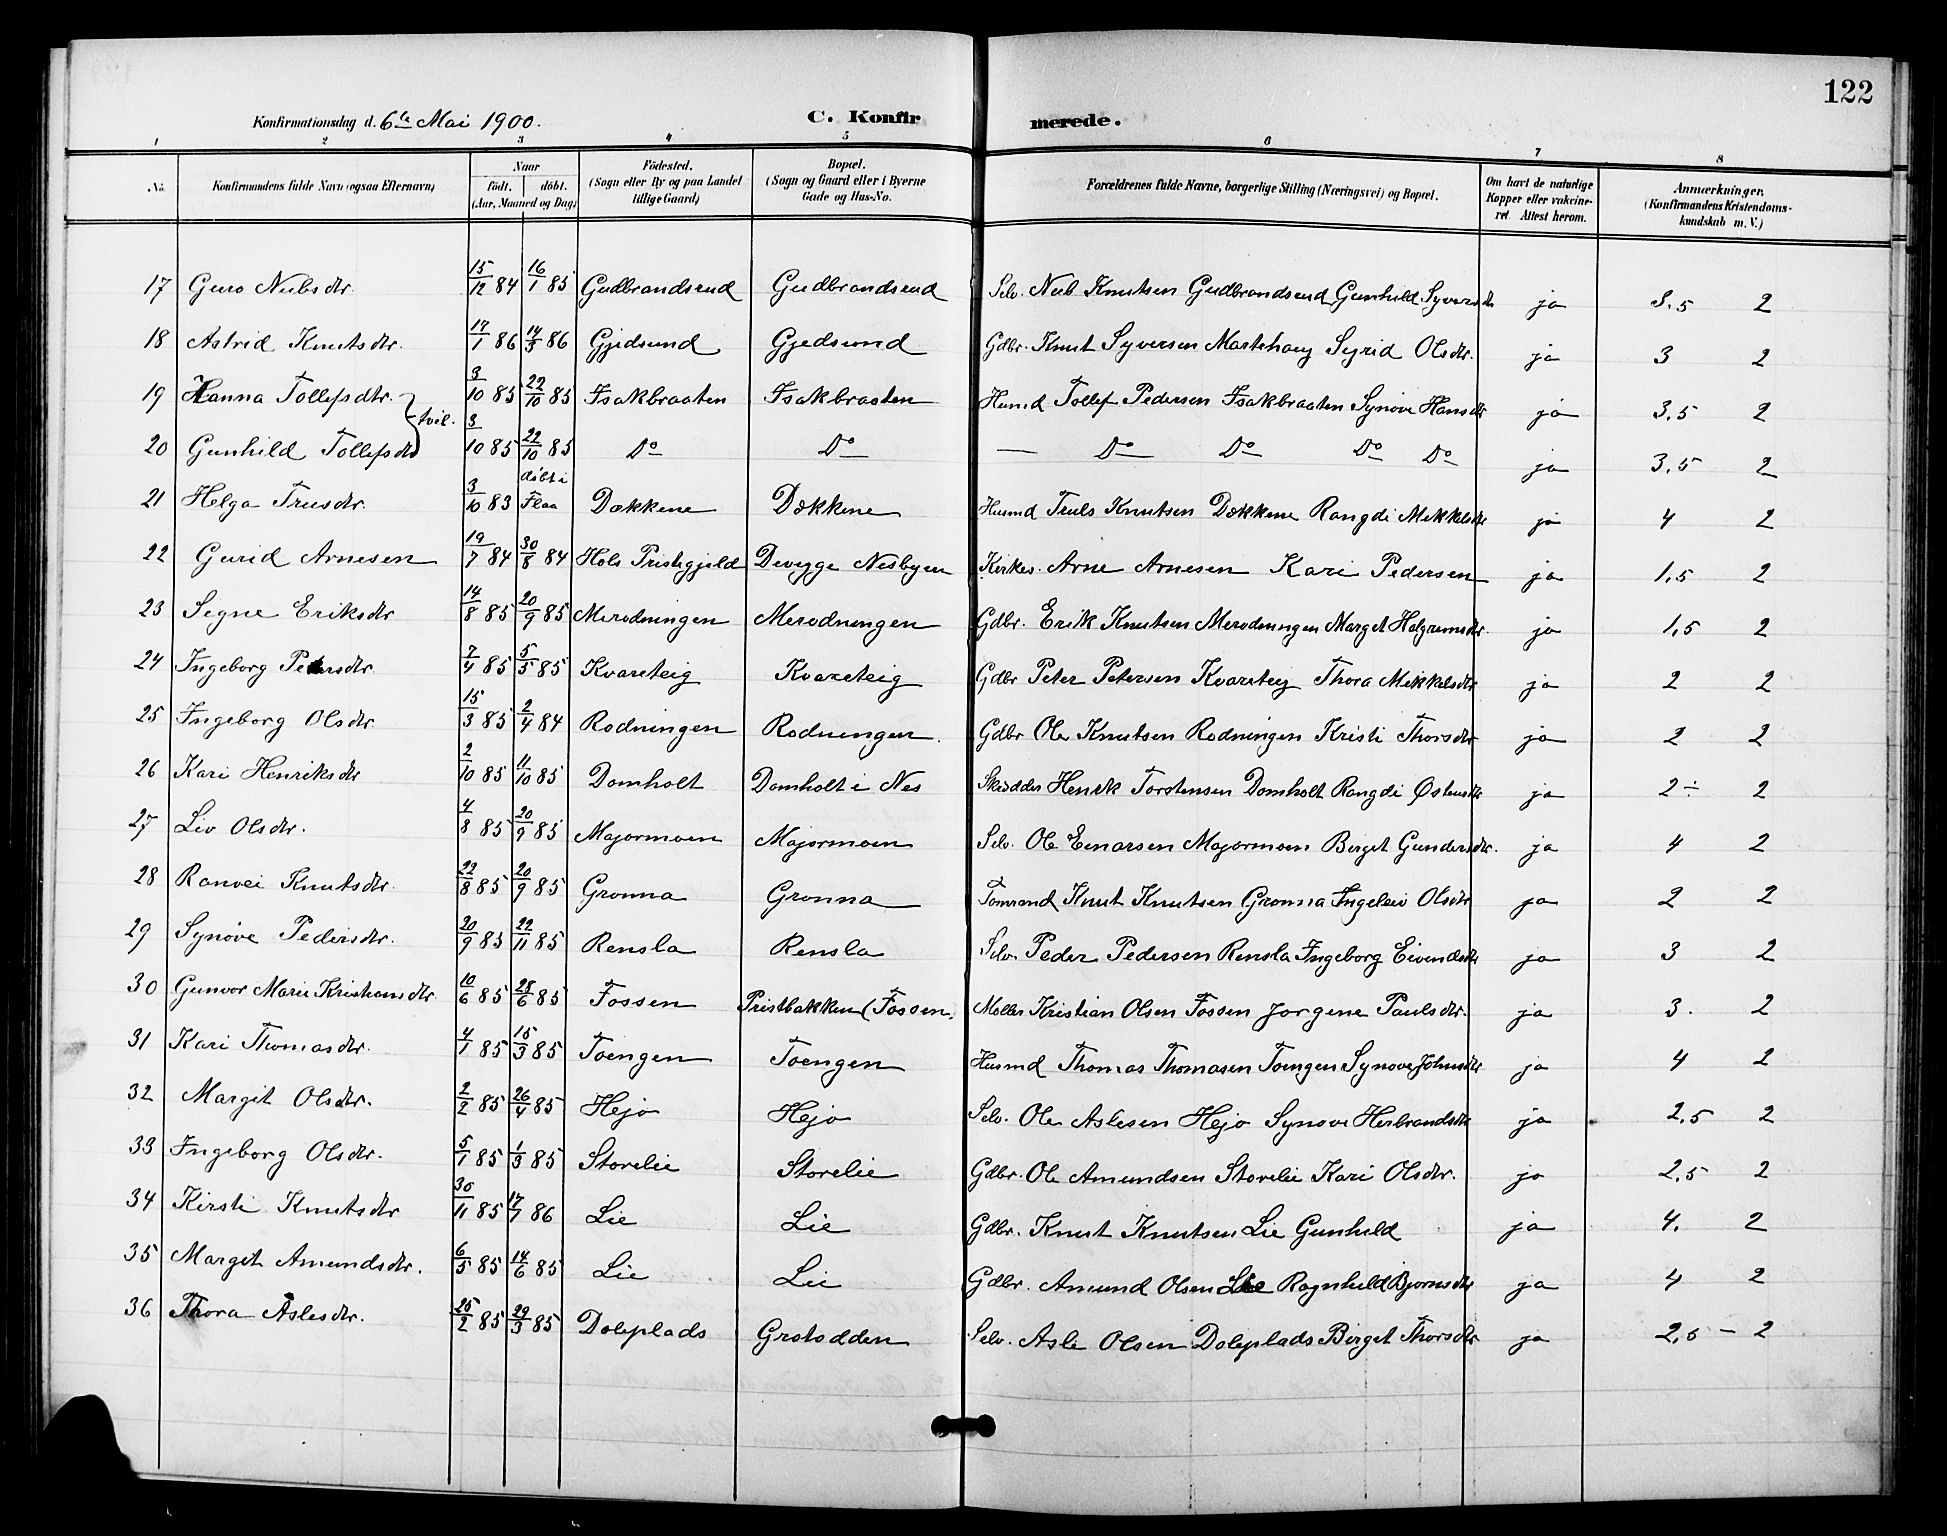 122
Konfirmationsdag d. 6te Mai 1900. C. Konfirmerede.
1 2 3 4 5 6 7 8
No. Konfirmandens fulde Navn (ogsaa Efternavn) Naar födt. döbt. (Aar, Maaned og Dag) Födested. (Sogn eller By og paa Landet tillige Gaard) Bopæl. (Sogn og Gaard eller i Byerne Gade og Hus-No. Forældrenes fulde Navne, borgerlige Stilling (Næringsvei) og Bopæl. Om havt de naturlige Kopper eller vakcineret Attest herom. Anmærkninger. (Konfirmandens Kristendomskundskab m. V.)
17 Guro Nubsdtr. 15/12 84 16/1 85 Gudbrandsrud Gudbrandsrud Selv. Nub Knutsen Gudbrandsrud Gunhild Syversdtr ja 3.5 2
18 Astrid Knutsdtr. 17/1 86 14/3 86 Gjedsund Gjedsund Gdbr. Knut Syversen Martehaug Syrid Olsdtr. ja 3 2
19 Hanna Tollefsdtr. } tvil. 3/10 85 22/10 85 Isakbraaten Isakbraaten Husmd Tollef Pedersen Isakbraaten Synøve Hansdtr ja 3.5 2
20 Gunhild Tollefsdtr 3/10 85 22/10 85 Do Do — Do Do Do Do ja 3.5 2
21 Helga Trusdtr. 3/10 83 döbt i Flaa Dækkene Dækkene Husmd Truls Knutsen Dækkene Rangdi Mekkelsdtr ja 4 2
22 Gurid Arnesen 19/7 84 30/8 84 Hols Pristegjeld Devegge Nesbyen Kirkes. Arne Arnesen Kari Pedersen ja 1.5 2
23 Segne Eriksdtr 14/8 85 20/9 85 Merodningen Merodningen Gdbr. Erik Knutsen Merodningen Marget Halgrimsdtr. ja 1.5 2
24 Ingeborg Petersdtr. 7/4 85 5/5 85 Kvareteig Kvareteig Gdbr Peter Petersen Kvareteig Thora Mekkelsdtr ja 2 2
25 Ingeborg Olsdtr. 15/3 85 2/4 84 Rodningen Rodningen. Gdbr Ole Knutsen Rodningen Kristi Thorsdtr ja 2 2
26 Kari Henriksdtr 2/10 85 11/10 85 Domholt Domholt i Nes Skrædder Henrik Torstensen Domholt Rangdi Østensdtr ja 2÷ 2
27 Liv Olsdtr. 4/8 85 20/9 85 Majormoen Majormoen Selv. Ole Einarsen Majormoen Birget Gundersdtr. ja 4 2
28 Ranvei Knutsdtr. 22/8 85 20/9 85 Gronna Gronna Tomrand Knut Knutsen Gronna Ingeleiv Olsdtr ja 2 2
29 Synøve Pedersdtr. 20/9 85 22/11 85 Rensla Rensla Selv. Peder Pedersen Rensla Ingeborg Eivendsdtr ja 3 2
30 Gunvor Marie Kristiansdtr. 10/6 85 28/6 85 Fossen Pristbakken (Fossen) Moller Kristian Olsen Fossen Jorgene Paulsdtr. ja 3. 2
31 Kari Thomasdtr. 4/1 85 15/3 85 Toengen Toengen Husmd Thomas Thomasen Toengen Synove Johnsdtr ja 4 2
32 Margit Olsdtr. 2/2 85 26/4 85 Hejo Hejo Selv. Ole Aslesen Hejo Synove Herbrandsdtr ja 2.5 2
33 Ingeborg Olsdtr. 5/1 85 1/3 85 Storelie Storelie Gdbr. Ole Amundsen Storelie Kari Olsdtr. ja 2.5 2
34 Kirsti Knutsdtr 30/11 85 17/1 86 Lie Lie Gdbr. Knut Knutsen Lie Gunhild ja 4. 2
35 Margit Amundsdtr. 6/5 85 14/6 85 Lie Lie Gdbr. Amund Olsen Lie Ragnhild Bjornsdtr ja 4 2
36 Thora Aslesdtr. 25/2 85 29/3 85 Doleplads Grotodden Selv. Asle Olsen Doleplads Birget Thorsdtr ja 2.5 — 2